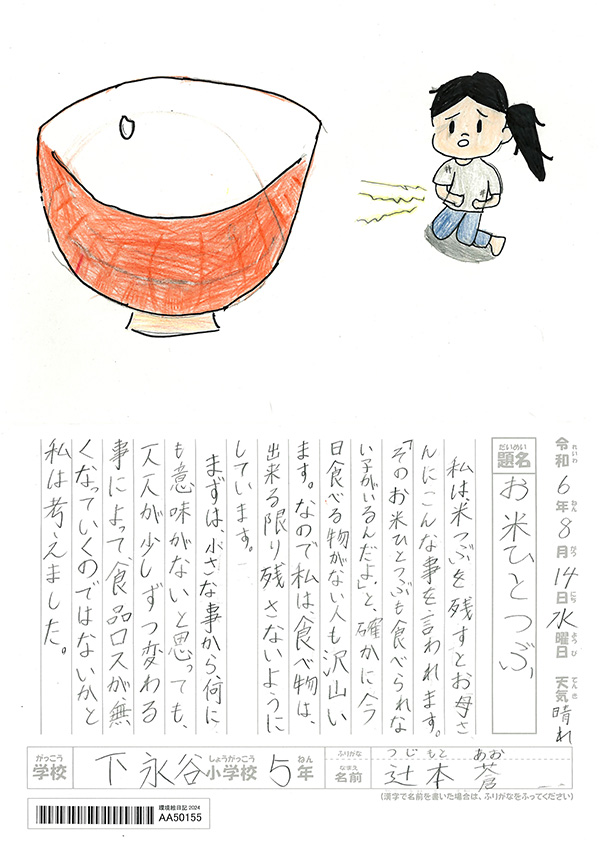 令和6年8月14日水曜日 天気晴れ
れいわ ねん がつ にち ようび てんき
だいめい
題名
お米ひとつぶ
私は、米つぶを残すとお母さ
んにこんな事を言われます。
「そのお米ひとつぶも食べられな
い子がいるんだよ。」と、確かに今
日食べる物がない人も沢山い
ます。なので私は、食べ物は、
出来る限り残さないように
しています。
まずは、小さな事から、何に
も意味がないと思っても、
一人一人が少しずつ変わる
事によって、食品ロスが無
くなっていくのではないかと
私は考えました。
がっこう
学校
しょうがっこう ねん
下永谷小学校5年
ふりがな つじもと あお
なまえ
名前 辻本 蒼
(漢字で名前を書いた場合は、ふりがなをふってください)
環境絵日記 2024
AA50155